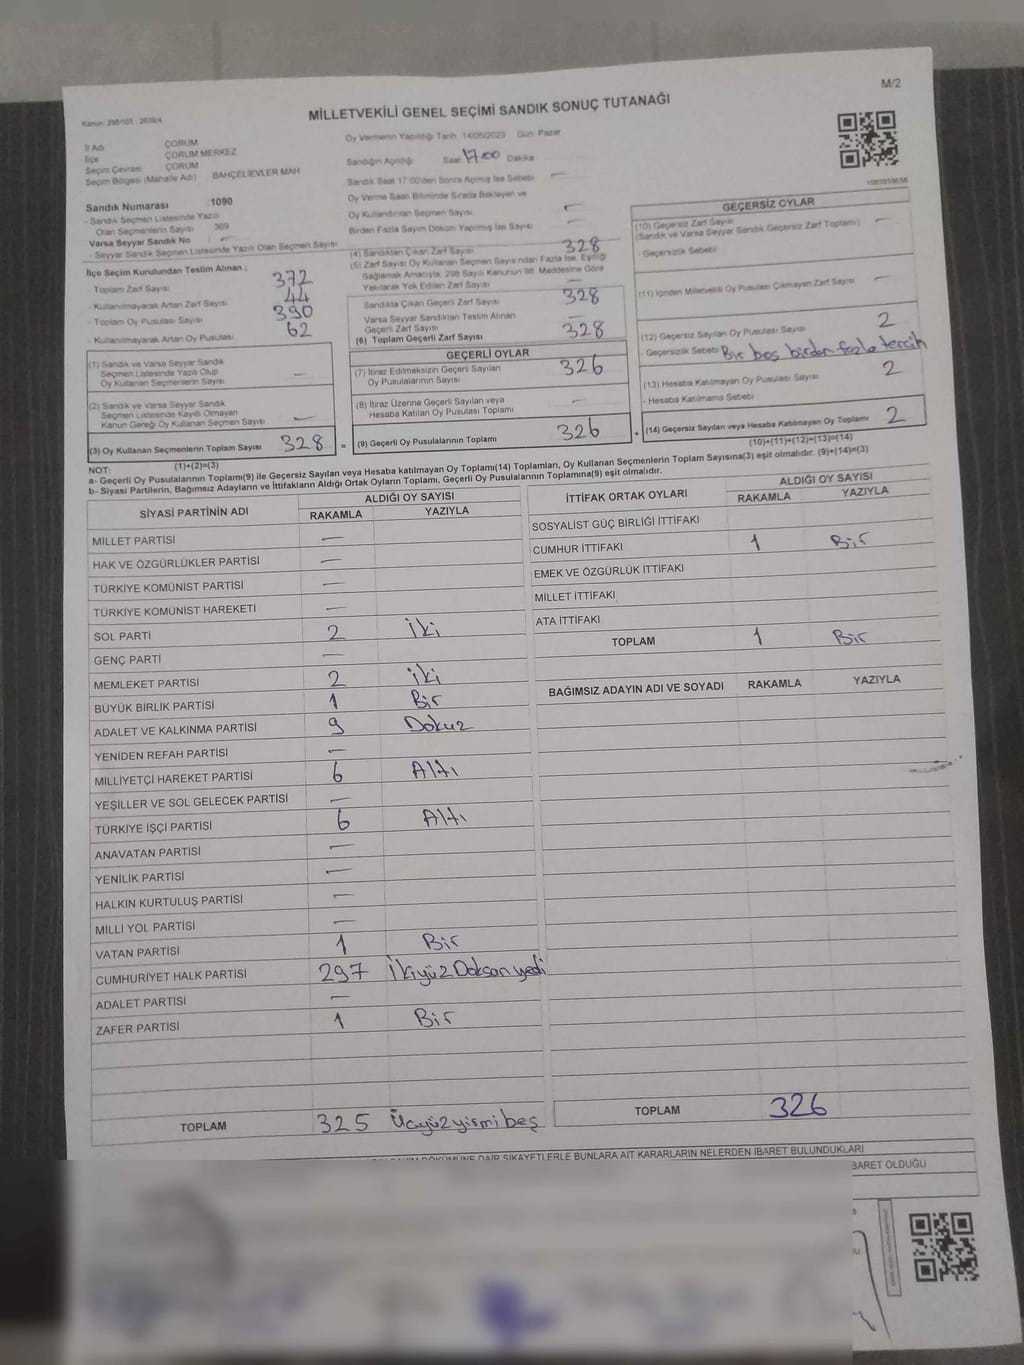 M/2
MİLLETVEKİLİ GENEL SEÇİMİ SANDIK SONUÇ TUTANAĞI
İl Adı ÇORUM
İlçe ÇORUM MERKEZ
Seçim Çevresi ÇORUM
Seçim Bölgesi (Mahalle Adı) BAHÇELİEVLER MAH
Sandık Numarası :1090
- Sandık Seçmen Listesinde Yazılı
Olan Seçmenlerin Sayısı 369
Varsa Seyyar Sandık No : —
- Seyyar Sandık Seçmen Listesinde Yazılı Olan Seçmen Sayısı
İlçe Seçim Kurulundan Teslim Alınan ;
- Toplam Zarf Sayısı 372
- Kullanılmayarak Artan Zarf Sayısı 44
- Toplam Oy Pusulası Sayısı 390
- Kullanılmayarak Artan Oy Pusulası 62
(1) Sandık ve Varsa Seyyar Sandık
Seçmen Listesinde Yazılı Olup
Oy Kullanan Seçmenlerin Sayısı —
(2) Sandık ve Varsa Seyyar Sandık
Seçmen Listesinde Kayıtlı Olmayan
Kanun Gereği Oy Kullanan Seçmen Sayısı —
(3) Oy Kullanan Seçmenlerin Toplam Sayısı 328 =
(1)+(2)=(3)
Oy Vermenin Yapıldığı Tarih 14/05/2023 Gün: Pazar
Sandığın Açıldığı Saat 17:00 Dakika
Sandık Saat 17:00'den Sonra Açılmış İse Sebebi —
Oy Verme Saati Bitiminde Sırada Bekleyen ve
Oy Kullandırılan Seçmen Sayısı —
Birden Fazla Sayım Döküm Yapılmış İse Sayısı —
(4) Sandıktan Çıkan Zarf Sayısı 328
(5) Zarf Sayısı Oy Kullanan Seçmen Sayısından Fazla İse, Eşitliği
Sağlamak Amacıyla, 298 Sayılı Kanunun 98. Maddesine Göre
Yakılarak Yok Edilen Zarf Sayısı —
Sandıkta Çıkan Geçerli Zarf Sayısı 328
Varsa Seyyar Sandıktan Teslim Alınan
Geçerli Zarf Sayısı —
(6) Toplam Geçerli Zarf Sayısı 328
GEÇERLİ OYLAR
(7) İtiraz Edilmeksizin Geçerli Sayılan
Oy Pusulalarının Sayısı 326
(8) İtiraz Üzerine Geçerli Sayılan veya
Hesaba Katılan Oy Pusulası Toplamı —
(9) Geçerli Oy Pusulalarının Toplamı 326 +
GEÇERSİZ OYLAR
(10) Geçersiz Zarf Sayısı
(Sandık ve Varsa Seyyar Sandık Geçersiz Zarf Toplamı) —
- Geçersizlik Sebebi
(11) İçinden Milletvekili Oy Pusulası Çıkmayan Zarf Sayısı —
(12) Geçersiz Sayılan Oy Pusulası Sayısı 2
- Geçersizlik Sebebi Bir boş birden fazla tercih
(13) Hesaba Katılmayan Oy Pusulası Sayısı 2
- Hesaba Katılmama Sebebi
(14) Geçersiz Sayılan veya Hesaba Katılmayan Oy Toplamı 2
(10)+(11)+(12)+(13)=(14)
NOT:
a- Geçerli Oy Pusulalarının Toplamı(9) ile Geçersiz Sayılan veya Hesaba katılmayan Oy Toplamı(14) Toplamları, Oy Kullanan Seçmenlerin Toplam Sayısına(3) eşit olmalıdır. (9)+(14)=(3)
b- Siyasi Partilerin, Bağımsız Adayların ve İttifakların Aldığı Ortak Oyların Toplamı, Geçerli Oy Pusulalarının Toplamına(9) eşit olmalıdır.
SİYASİ PARTİNİN ADI ALDIĞI OY SAYISI
RAKAMLA YAZIYLA
MİLLET PARTİSİ —
HAK VE ÖZGÜRLÜKLER PARTİSİ —
TÜRKİYE KOMÜNİST PARTİSİ —
TÜRKİYE KOMÜNİST HAREKETİ —
SOL PARTİ 2 İki
GENÇ PARTİ —
MEMLEKET PARTİSİ 2 iki
BÜYÜK BİRLİK PARTİSİ 1 Bir
ADALET VE KALKINMA PARTİSİ 9 Dokuz
YENİDEN REFAH PARTİSİ —
MİLLİYETÇİ HAREKET PARTİSİ 6 Altı
YEŞİLLER VE SOL GELECEK PARTİSİ —
TÜRKİYE İŞÇİ PARTİSİ 6 Altı
ANAVATAN PARTİSİ —
YENİLİK PARTİSİ —
HALKIN KURTULUŞ PARTİSİ —
MİLLİ YOL PARTİSİ —
VATAN PARTİSİ 1 Bir
CUMHURİYET HALK PARTİSİ 297 İkiyüz Doksan yedi
ADALET PARTİSİ —
ZAFER PARTİSİ 1 Bir
TOPLAM 325 Üçyüz yirmi beş
İTTİFAK ORTAK OYLARI ALDIĞI OY SAYISI
RAKAMLA YAZIYLA
SOSYALİST GÜÇ BİRLİĞİ İTTİFAKI
CUMHUR İTTİFAKI 1 Bir
EMEK VE ÖZGÜRLÜK İTTİFAKI
MİLLET İTTİFAKI
ATA İTTİFAKI
TOPLAM 1 Bir
BAĞIMSIZ ADAYIN ADI VE SOYADI RAKAMLA YAZIYLA
TOPLAM 326
DÖKÜMÜNE DAİR ŞİKAYETLERLE BUNLARA AİT KARARLARIN NELERDEN İBARET BULUNDUKLARI
BARET OLDUĞU